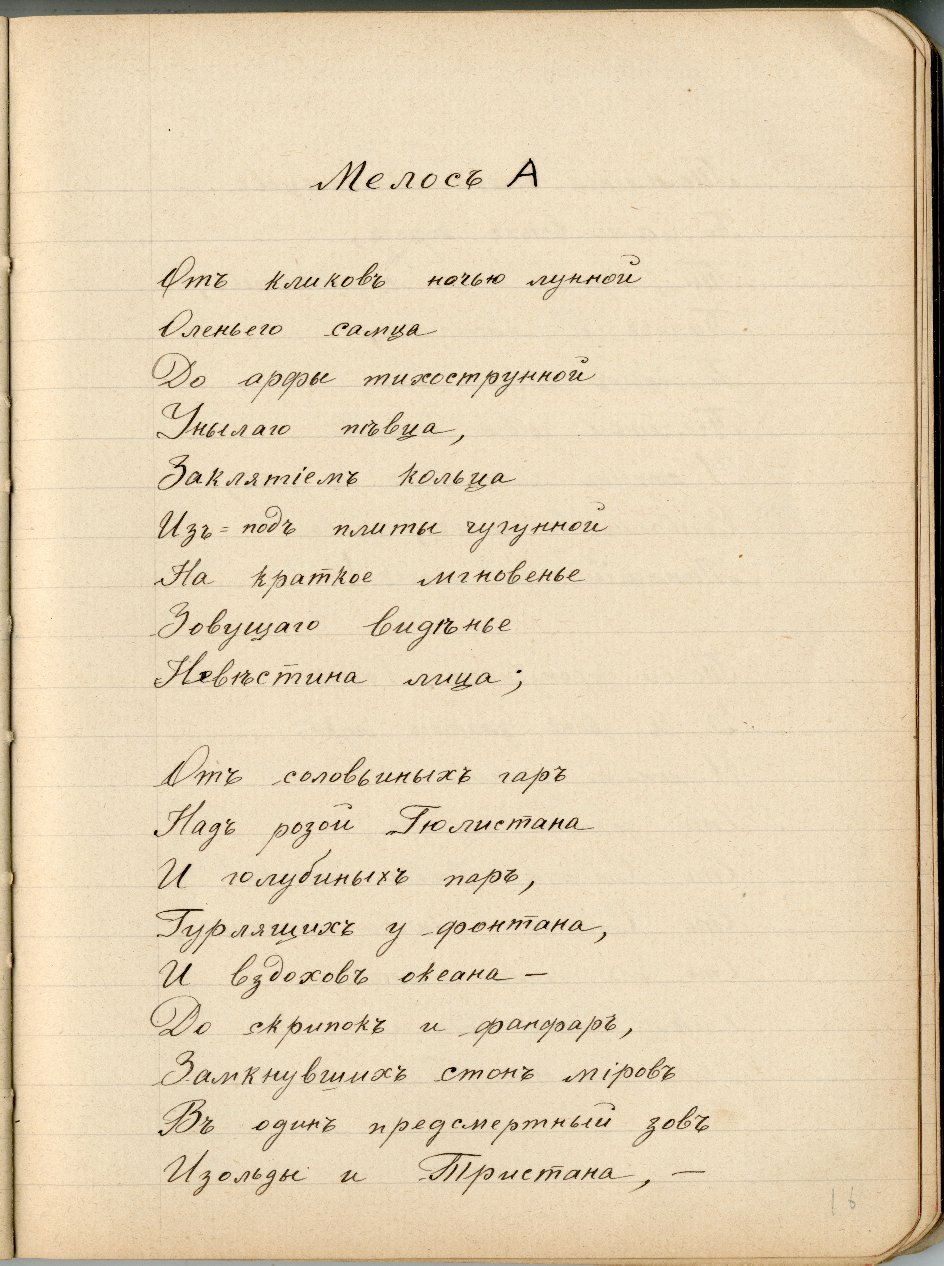 Мелосъ А
Отъ кликовъ ночью лунной
Оленьего самца
До арфы тихострунной
Унылаго пѣвца,
Заклятіемъ кольца
Изъ=подъ плиты чугунной
На краткое мгновенье
Зовущаго видѣнье
Невѣстина лица;
Отъ соловьиныхъ гаръ
Надъ розой Гюлистана
И голубиныхъ паръ,
Гурлящихъ у фонтана,
И вздоховъ океана —
До скрипокъ и фанфаръ,
Замкнувшихъ стонъ міровъ
Въ одинъ предсмертный зовъ
Изольды и Тристана, —
16